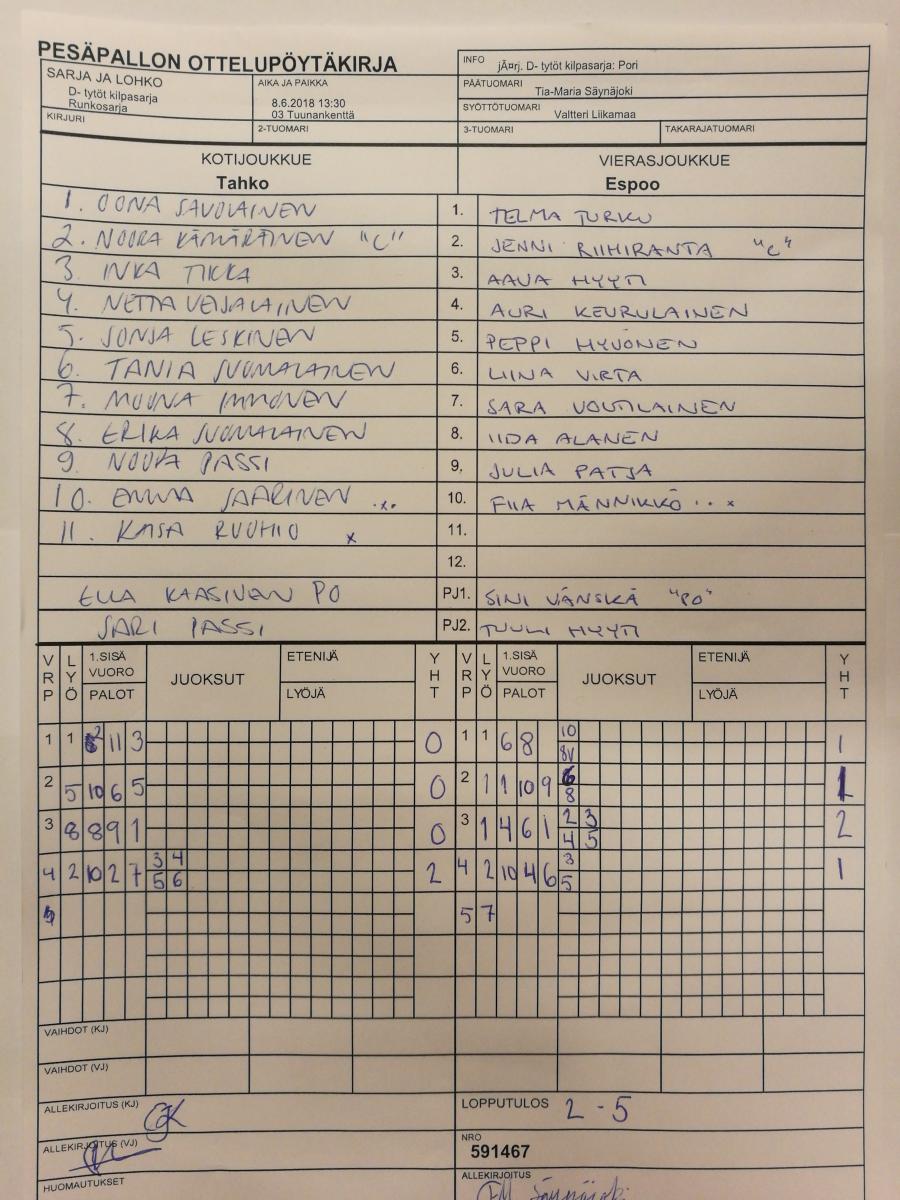 PESÄPALLON OTTELUPÖYTÄKIRJA
SARJA JA LOHKO
D- tytöt kilpasarja
Runkosarja
AIKA JA PAIKKA
8.6.2018 13:30
03 Tuunankenttä
KIRJURI
2-TUOMARI
INFO jÃ¤rj. D- tytöt kilpasarja: Pori
PÄÄTUOMARI Tia-Maria Säynäjoki
SYÖTTÖTUOMARI Valtteri Liikamaa
3-TUOMARI
TAKARAJATUOMARI
KOTIJOUKKUE
Tahko
VIERASJOUKKUE
Espoo
1. OONA SAVOLAINEN 1. TELMA TURKU
2. NOORA KÄMÄRÄINEN "C" 2. JENNI RIIHIRANTA "C"
3. INKA TIKKA 3. AAVA HYYTI
4. NETTA VEIJALAINEN 4. AURI KEURULAINEN
5. SONJA LESKINEN 5. PEPPI HYVÖNEN
6. TANIA SUOMALAINEN 6. LIINA VIRTA
7. MOONA IMMONEN 7. SARA VOUTILAINEN
8. ERIKA SUOMALAINEN 8. IIDA ALANEN
9. NOORA PASSI 9. JULIA PATJA
10. EMMA SAARINEN ..x. 10. FIIA MÄNNIKKÖ ..x
11. KAISA RUOHIO x 11.
12.
ELLA KAASINEN PO PJ1. SINI VÄNSKÄ "PO"
SARI PASSI PJ2. TUULI HYYTI
VRP LYÖ 1.SISÄ VUORO PALOT JUOKSUT ETENIJÄ LYÖJÄ YHT VRP LYÖ 1.SISÄ VUORO PALOT JUOKSUT ETENIJÄ LYÖJÄ YHT
1 1 2 11 3 0 1 1 6 8 10 8V 1
2 5 10 6 5 0 2 1 1 10 9 6 8 1
3 8 8 9 1 0 3 1 4 6 1 2 3 4 5 2
4 2 10 2 7 3 4 5 6 2 4 2 10 4 6 3 5 1
5 7
VAIHDOT (KJ)
VAIHDOT (VJ)
ALLEKIRJOITUS (KJ)
LOPPUTULOS 2 - 5
ALLEKIRJOITUS (VJ)
NRO
591467
HUOMAUTUKSET
ALLEKIRJOITUS